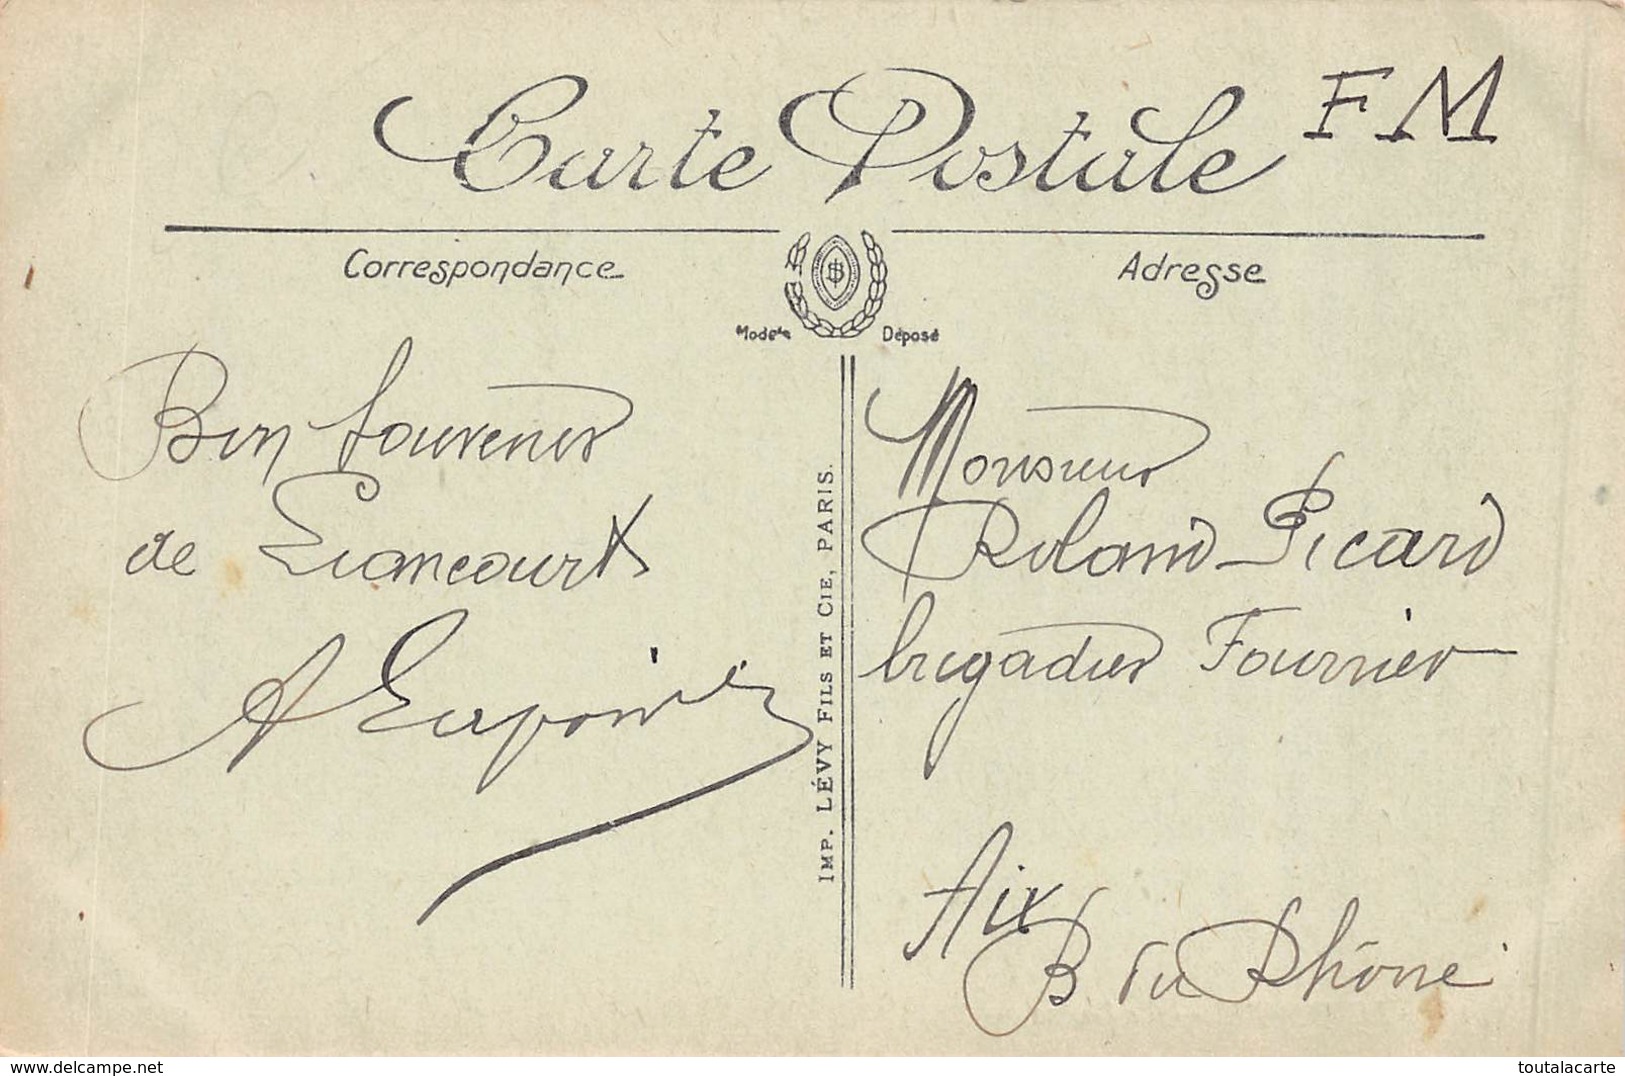 Carte Postale
FM
Correspondance
Adresse
Modèle Déposé
Bon souvenir
de Liancourt
IMP. LÉVY FILS ET CIE, PARIS.
Monsieur
Roland Picard
brigadier Fournier
Aix
B du Rhône
www.delcampe.net
toutalacarte